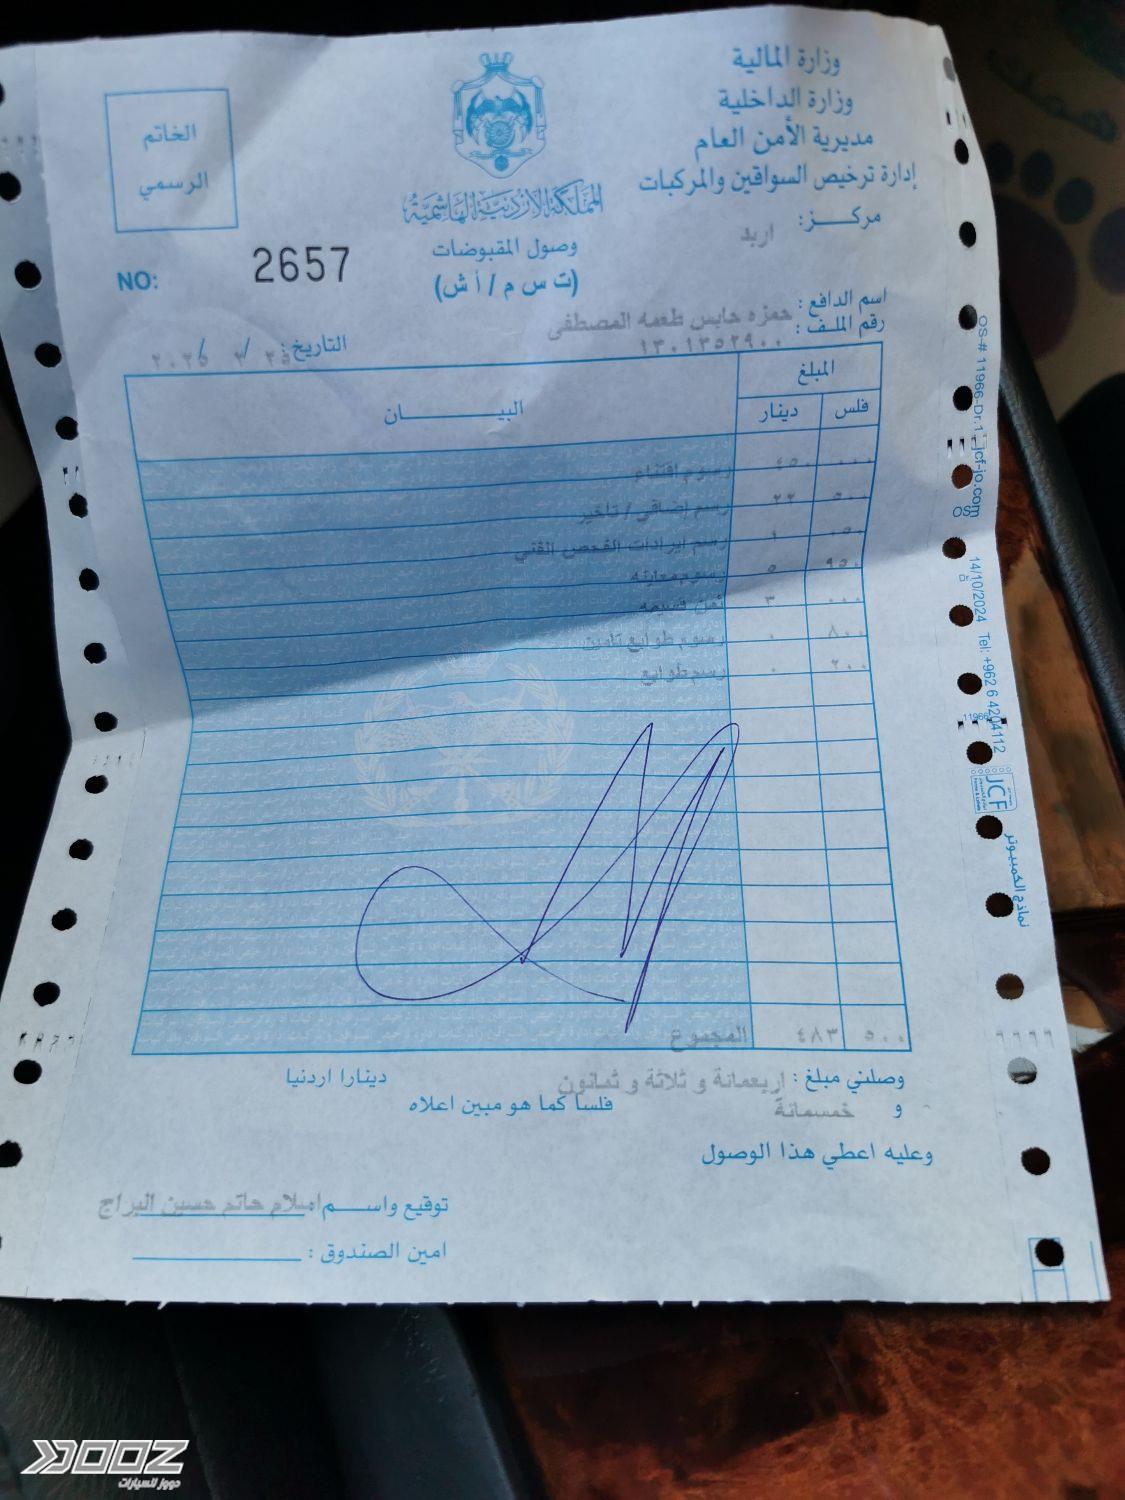 وزارة المالية
وزارة الداخلية
مديرية الأمن العام
إدارة ترخيص السواقين والمركبات
مركـــز: اربد
المملكة الأردنية الهاشمية
وصول المقبوضات
(ت س م / أ ش)
الخاتم
الرسمي
NO: 2657
اسم الدافع : حمزه حابس طعمه المصطفى
رقم الملف : ١٣٠١٣٥٢٩٠٠
التاريخ: ٢٥ / ٢ / ٢٠٢٥
المبلغ
فلس دينار البيــــــــان
٠٠٠ ٤٥٠ رسوم اقتناء
٥٠٠ ٢٢ رسم إضافي / تأخير
٠٥٠ ١ رسم ايرادات الفحص الفني
٩٥٠ ٥ رسوم معاينه
٠٠٠ ٣ ثمن قسيمه
٨٠٠ ٠ رسوم طوابع تامين
٢٠٠ ٠ رسم طوابع
٥٠٠ ٤٨٣ المجموع
وصلني مبلغ : اربعمائة و ثلاثة و ثمانون دينارا اردنيا
و خمسمائة فلسا كما هو مبين اعلاه
وعليه اعطي هذا الوصول
توقيع واســـم اسلام حاتم حسين البراج
امين الصندوق :
OS-# 11966-Dr.1 jcf-jo.com
OS
14/10/2024 Tel: +962 6 4204112
11966
JCF
نماذج الكمبيوتر
DOOZ
دووز للسيارات